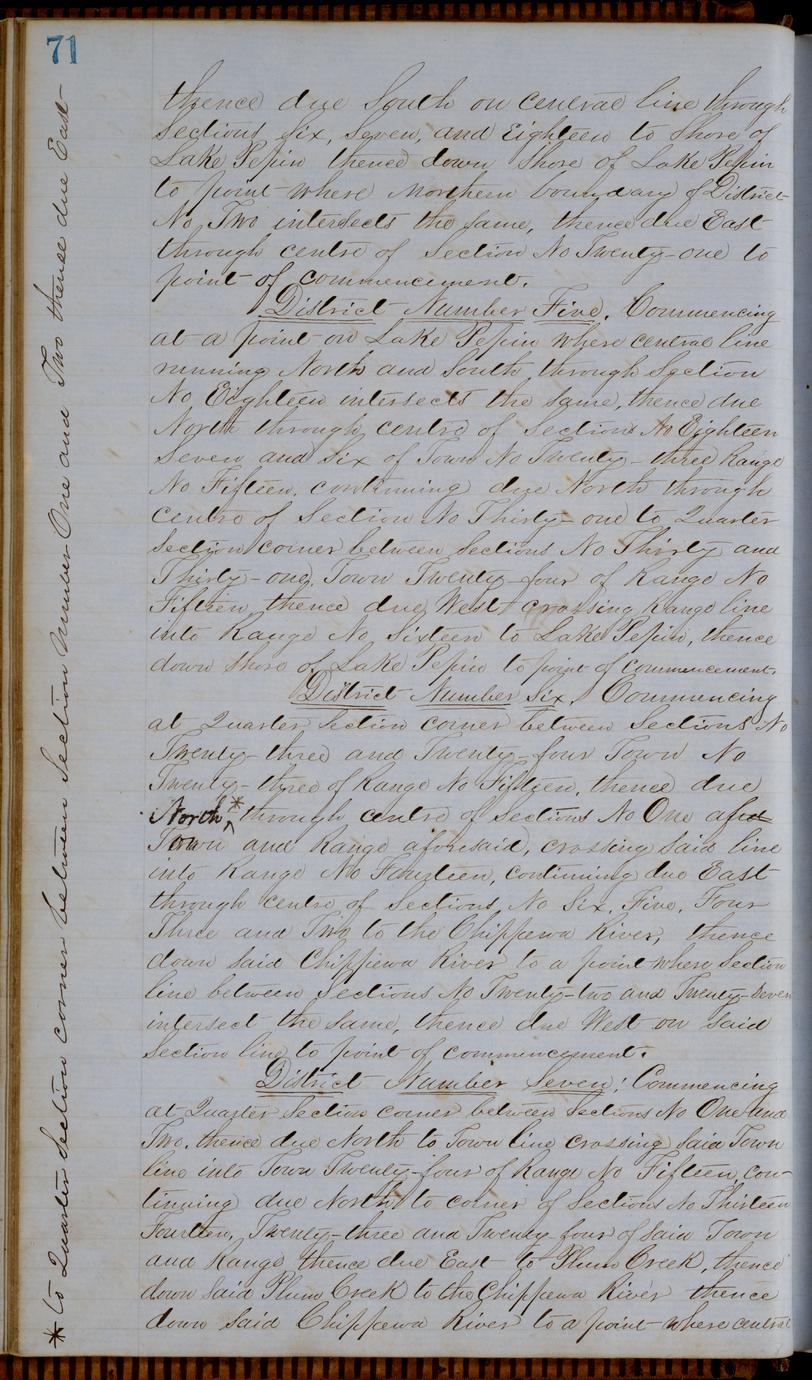 71
thence due South on central line through
Sections Six, Seven, and Eighteen to Shore of
Lake Pepin thence down Shore of Lake Pepin
to point where Northern boundary of District
No Two intersects the same, thence due East
through centre of Section No Twenty-one to
point of commencement.
District Number Five. Commencing
at a point on Lake Pepin where central line
running North and South through Section
No Eighteen intersects the same, thence due
North through centre of Sections No Eighteen
Seven and Six of Town No Twenty-three Range
No Fifteen, continuing due North through
centre of Section No Thirty-one to Quarter
Section corner between Sections No Thirty and
Thirty-one, Town Twenty-four of Range No
Fifteen thence due West crossing Range line
into Range No Sixteen to Lake Pepin, thence
down shore of Lake Pepin to point of commencement.
District Number Six. Commencing
at Quarter Section corner between Sections No
Twenty-three and Twenty-four Town No
Twenty-three of Range No Fifteen, thence due
North * through centre of Sections No One afsd
Town and Range aforesaid, crossing said line
into Range No Fourteen, continuing due East
through centre of Sections, No Six, Five, Four
Three and Two to the Chippewa River, thence
down said Chippewa River to a point where Section
line between Sections No Twenty-two and Twenty-Seven
intersect the same, thence due West on said
Section line to point of commencement.
District Number Seven; Commencing
at Quarter Section corner between Sections No One and
Two, thence due North to Town line crossing said Town
line into Town Twenty-four of Range No Fifteen, con-
tinuing due North to corner of Sections No Thirteen
Fourteen, Twenty-three and Twenty four of said Town
and Range thence due East to Plum Creek, thence
down said Plum Creek to the Chippewa River thence
down said Chippewa River to a point where central
* to Quarter Section corner between Section Number One and Two thence due East